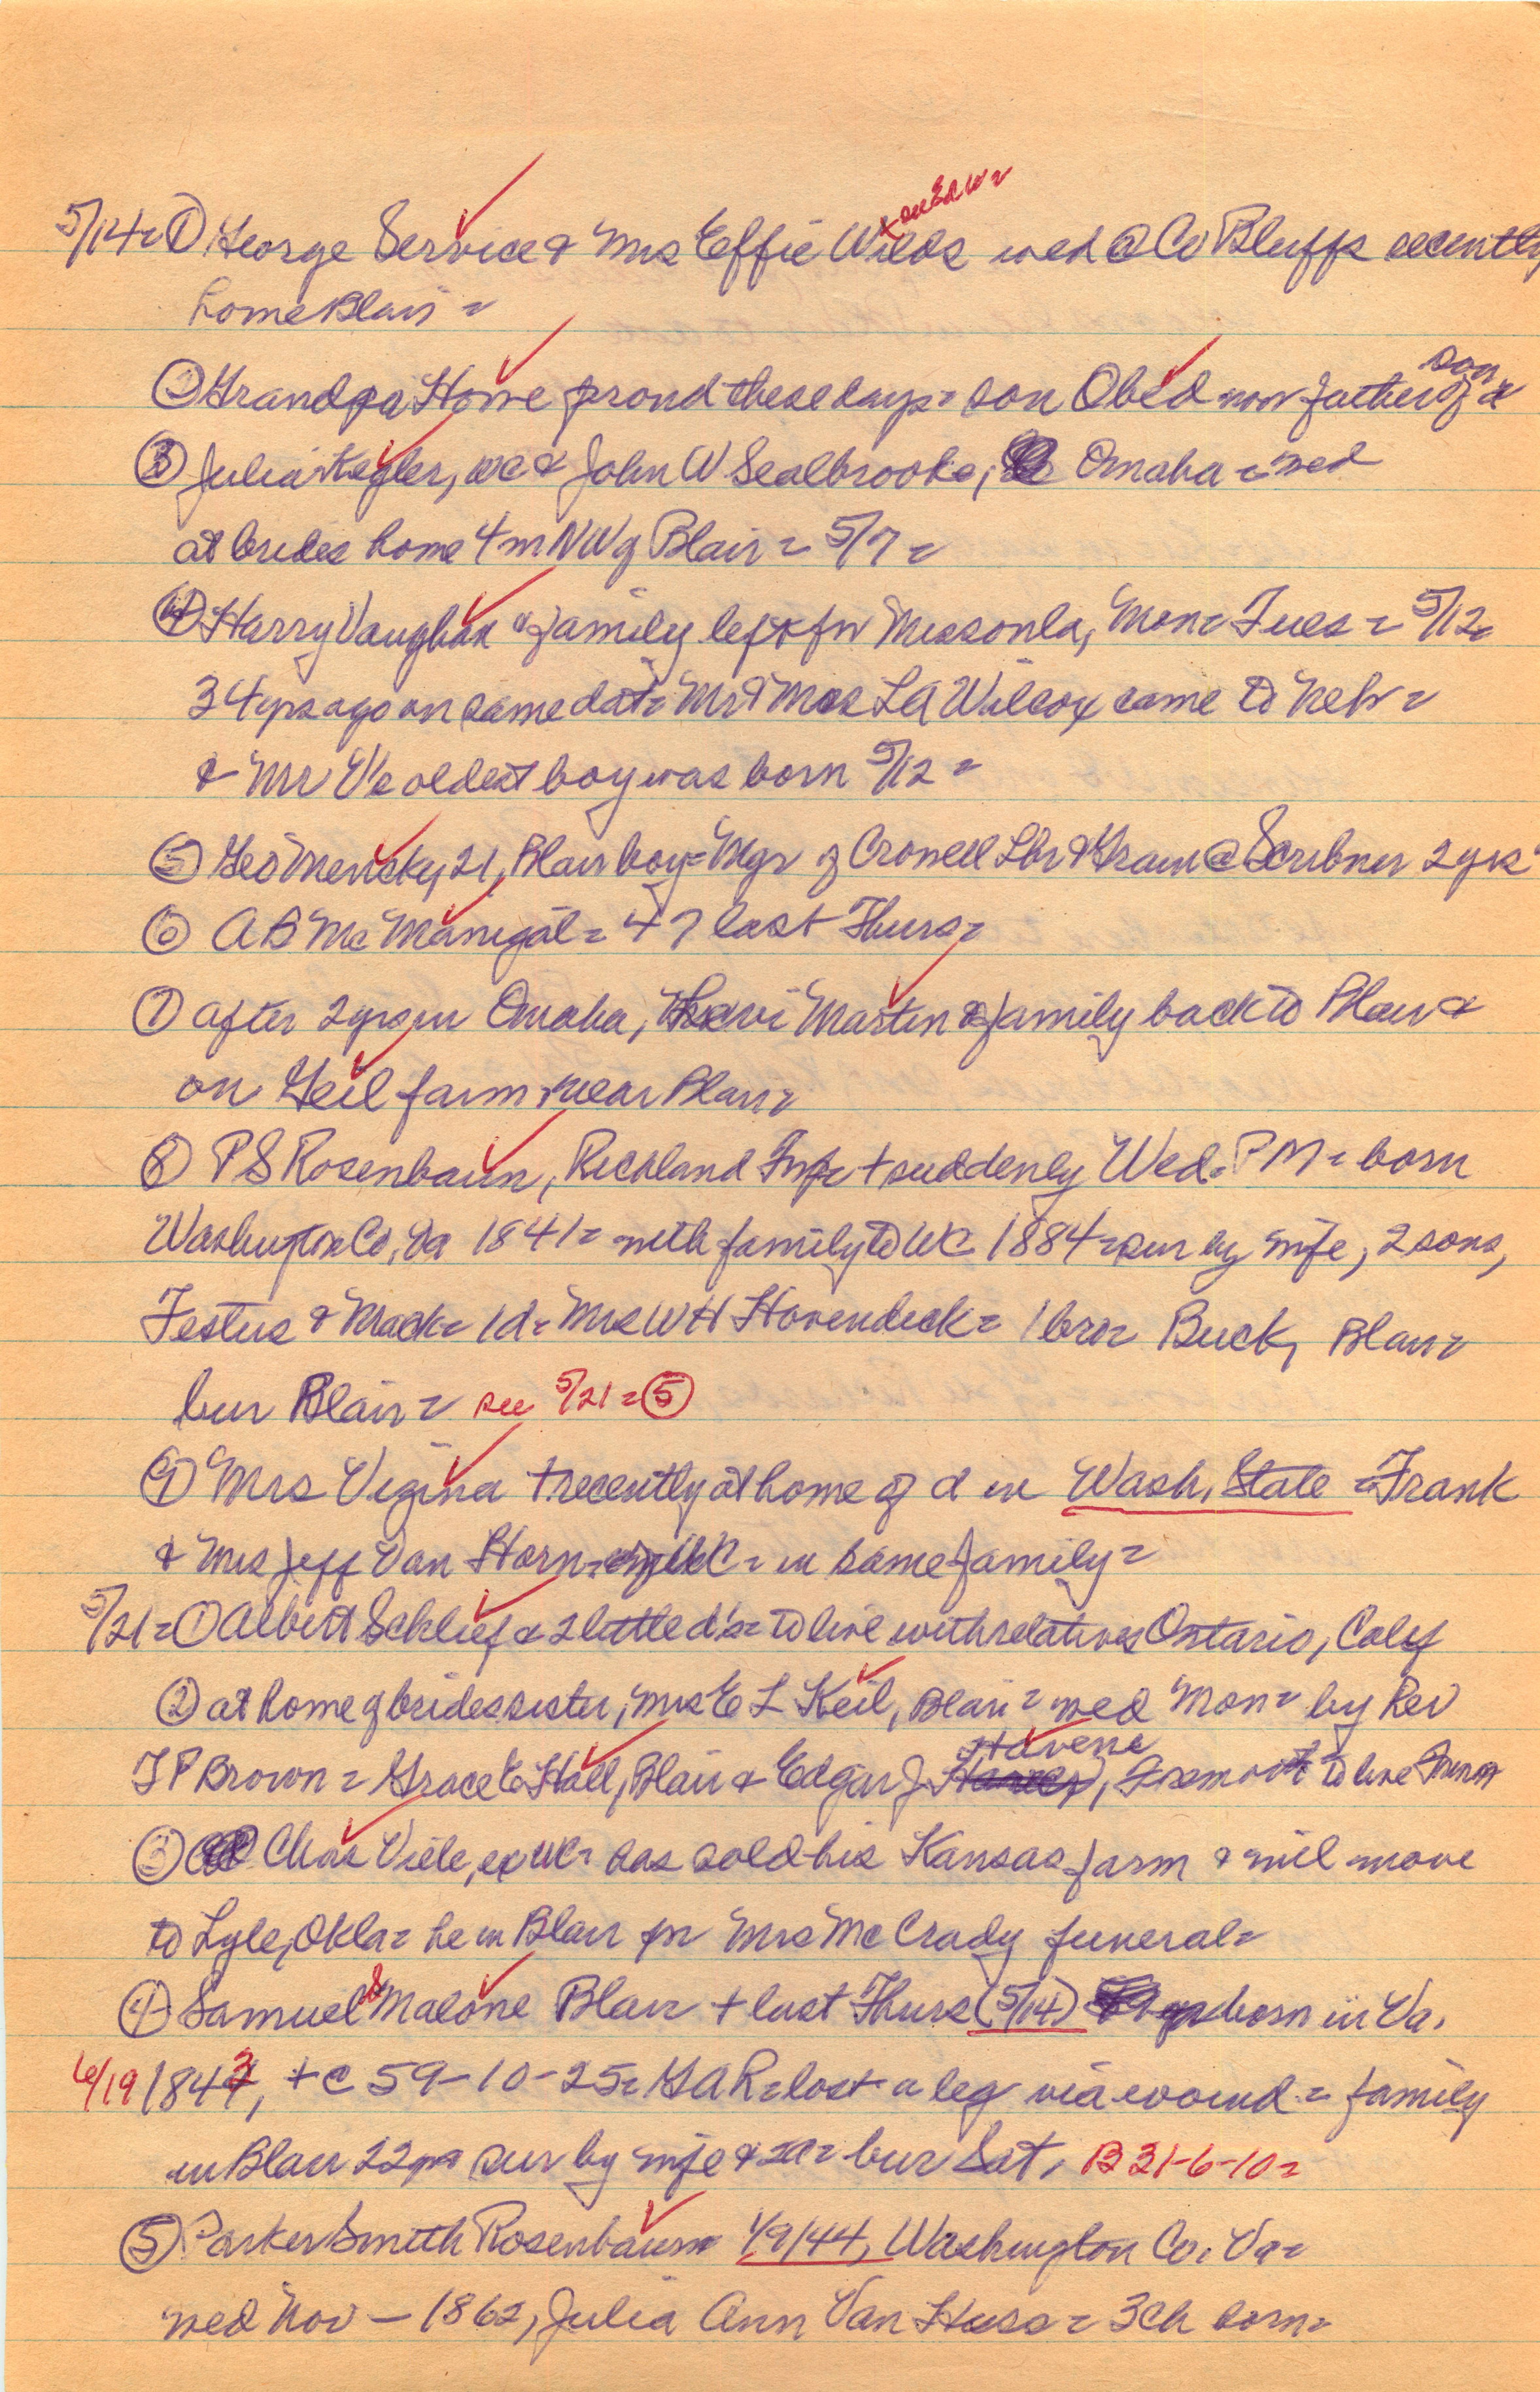 5/14= ① George Service & Mrs Effie Wilds wed @ Co Bluffs recently
home Blair =
② Grandpa Howe proud these days = son Obed now father of a son
③ Julia Kegler, WC & John W Sealbrooke, Omaha = wed
at brides home 4 m NW of Blair = 5/7 =
④ Harry Vaughan & family left for Missoula, Mon = Tues = 5/12 =
34 yrs ago on same date Mr & Mrs LA Wilcox came to Nebr =
& Mr V's oldest boy was born 5/12 =
⑤ Geo Mencky 21, Blair boy = Mgr of Crowell Lbr & Grain @ Scribner 2 yrs
⑥ AB McManigal = 47 last Thurs =
⑦ after 2 yrs in Omaha, Levi Martin & family back to Blair &
on Geil farm near Blair =
⑧ PS Rosenbaum, Richland Twp + suddenly Wed. PM = born
Washington Co, Va 1841 = with family to WC 1884 = sur by wife, 2 sons,
Festus & Mack = 1d = Mrs WH Hovendick = 1 bro = Buck, Blair =
bur Blair = see 5/21 = ⑤
⑨ Mrs Vigina + recently at home of d in Wash, State = Frank
& Mrs Jeff Van Horn = WC = in same family =
5/21 = ① Albert Schlief & 2 little d's = to live with relatives Ontario, Calif
② at home of brides sister, Mrs E L Keil, Blair = wed Mon = by Rev
TP Brown = Grace E Hall, Blair & Edgar J Havene, Fremont to live Fremont
③ Chas Viele, ex WC = has sold his Kansas farm & will move
to Lyle, Okla = he in Blair for Mrs McCrady funeral =
④ Samuel S Malone Blair + last Thurs (5/14) born in Va.
6/19 1843, + @ 59-10-25 = GAR = lost a leg via wound = family
in Blair 22 yrs sur by wife & 2d = bur Sat, B 21-6-10 =
⑤ Parker Smith Rosenbaum 1/9/44, Washington Co. Va =
wed Nov — 1862, Julia Ann Van Huss = 3 ch born =